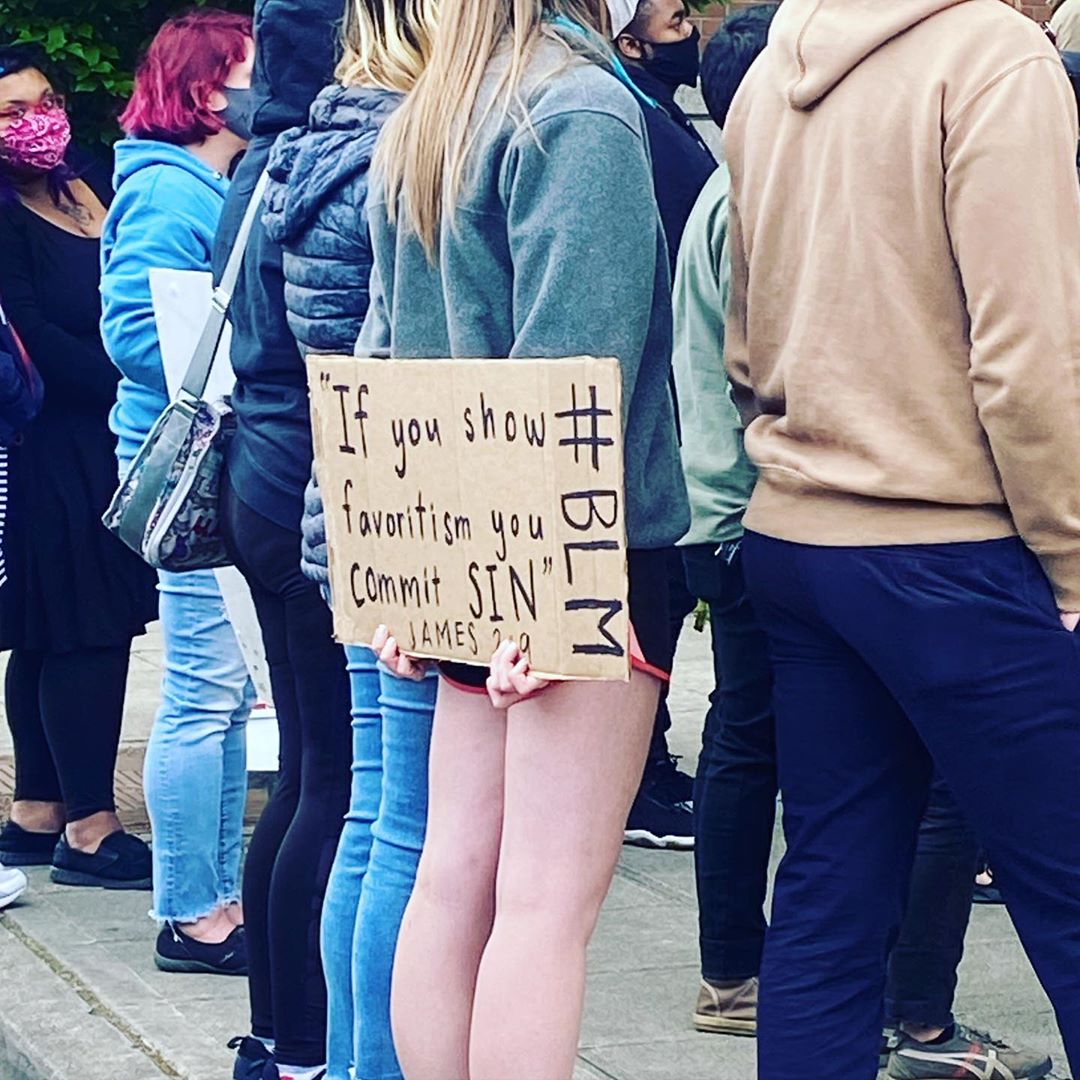 "If you show
favoritism you
commit SIN"
JAMES 2:9
#BLM